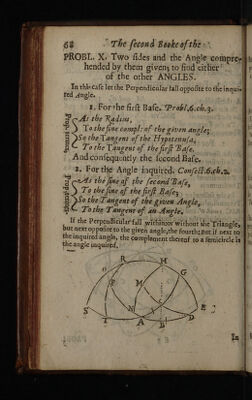 68 The second Booke of the
PROBL. X. Two sides and the Angle compre-
hended by them given; to find either
of the other ANGLES.
In this case let the Perpendicular fall opposite to the inqui-
red Angle.
1. For the first Base. Probl.6.ch.3.
As the Radius,
To the sine compl: of the given angle;
So the Tangent of the Hypotenusa,
To the Tangent of the first Base.
And consequently the second Base.
2. For the Angle inquired. Consect.6.ch.2.
As the sine of the second Base,
To the sine of the first Base;
So the Tangent of the given Angle,
To the Tangent of an Angle.
If the Perpendicular fall within or without the Triangle,
but next opposite to the given angle, the fourth; But if next to
the inquired angle, the complement thereof to a semicircle is
the angle inquired.
R M
O G
P M C
S T A B D E
N
In